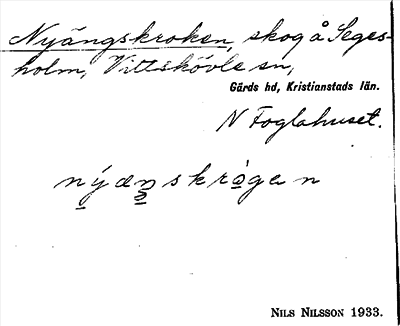 Nyängskroken, skog å Seges-
holm, Vittskövle sn,
Gärds hd, Kristianstads län.
N Foglahuset.
nýænskrògen
NILS NILSSON 1933.